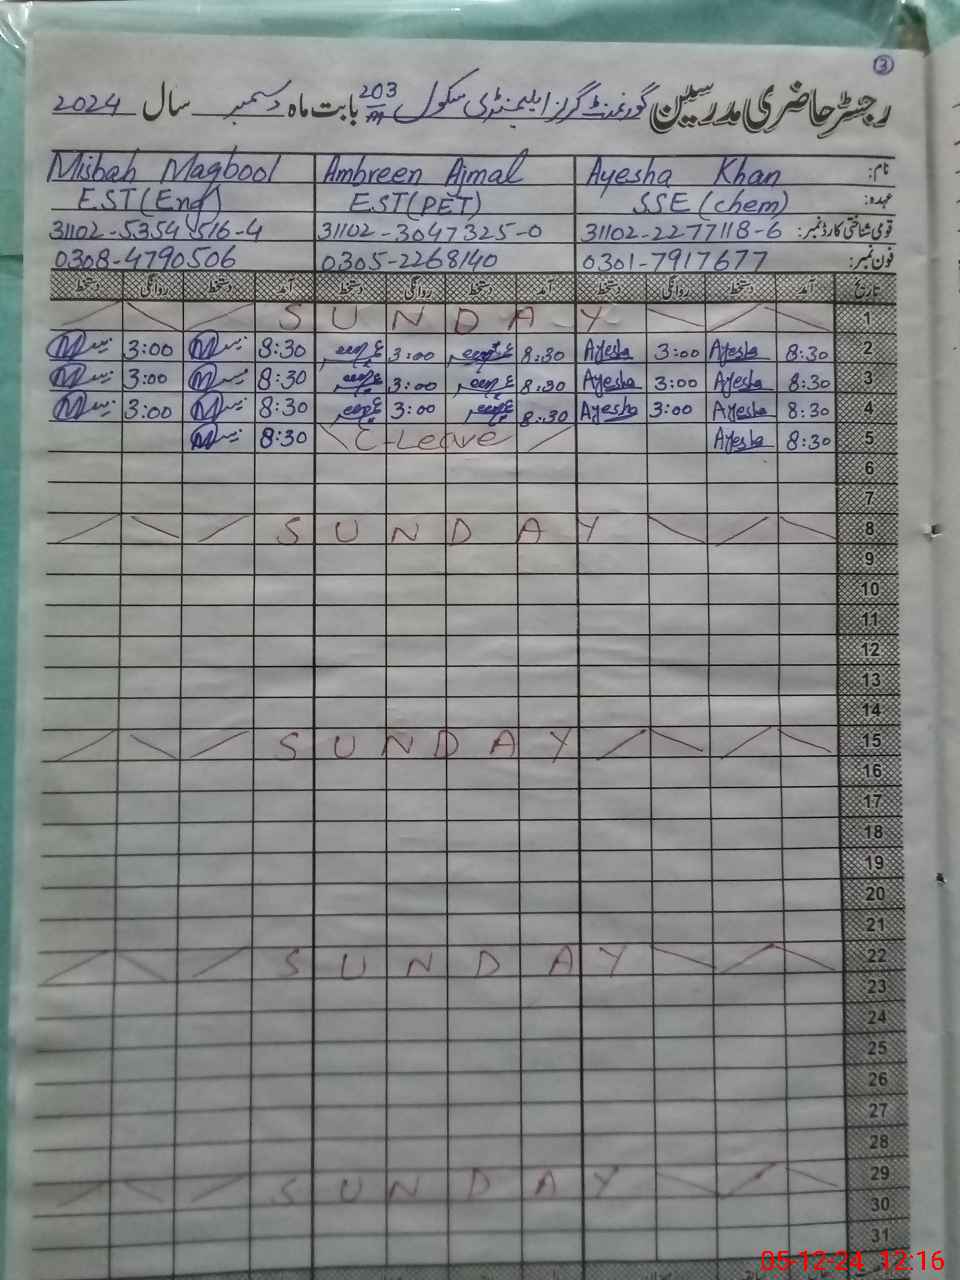 ③
رجسٹر حاضری مدرسین گورنمنٹ گرلز ایلیمنٹری سکول 203/m بابت ماہ دسمبر سال 2024
نام: Ayesha Khan Ambreen Ajmal Misbah Maqbool
عہدہ: SSE (chem) EST(PET) EST(Eng)
قومی شناختی کارڈ نمبر: 31102-2277118-6 31102-3047325-0 31102-5354516-4
فون نمبر: 0301-7917677 0305-2268140 0308-4790506
تاریخ آمد دستخط روانگی دستخط آمد دستخط روانگی دستخط آمد دستخط روانگی دستخط
1 SUNDAY
2 8:30 Ayesha 3:00 Ayesha 8:30 3:00 8:30 3:00
3 8:30 Ayesha 3:00 Ayesha 8:30 3:00 8:30 3:00
4 8:30 Ayesha 3:00 Ayesha 8:30 3:00 8:30 3:00
5 8:30 Ayesha C-Leave 8:30
6
7
8 SUNDAY
9
10
11
12
13
14
15 SUNDAY
16
17
18
19
20
21
22 SUNDAY
23
24
25
26
27
28
29 SUNDAY
30
31
05-12-24 12:16